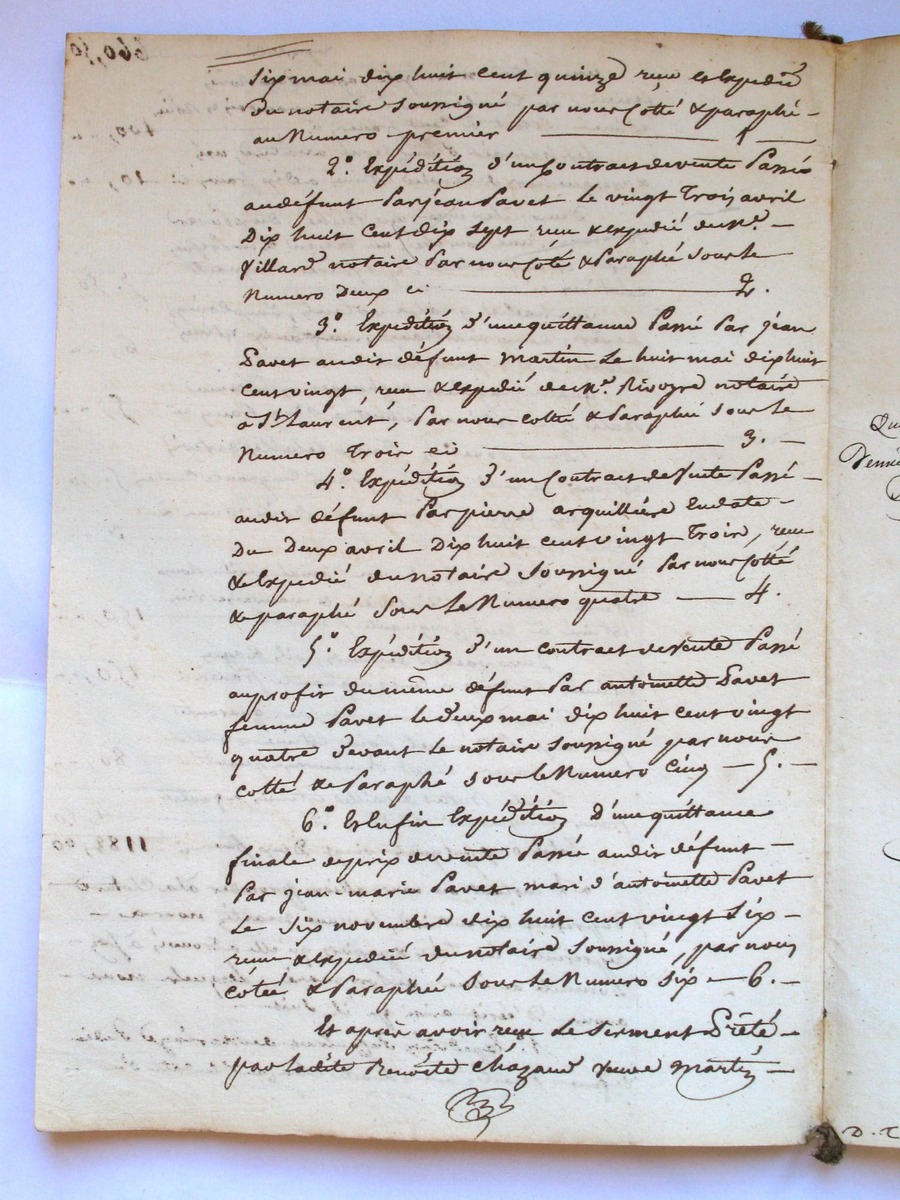 six mai dix huit cent quinze reçu et expédié
du notaire soussigné par nous Cotté & paraphé -
au Numero premier ——— 1 —
2° Expédition d'un Contract de vente Passé
au défunt Par jean Pavet le vingt Trois avril
Dix huit Cent dix sept reçu & expedié du Me. -
Villard notaire Par nous Coté & Paraphé sous le
Numero Deux ci ——— 2.
3° Expédition d'une quittance Passé Par jean
Pavet audit défunt Martin Le huit mai dix huit
Cent vingt, reçu & expedié de Me. notaire
à St. Laurent, Par nous cotté & Paraphé sous Le
Numero Trois ci ——— 3. —
4° Expédition d'un Contract de Vente Passé -
audit défunt Par pierre arquillière En date -
Du Deux avril Dix huit cent vingt Trois, reçu
& Expedié du notaire Soussigné Par nous Cotté
& paraphé Sous Le Numero quatre — 4.
5° Expédition d'un contract de vente Passé
au profit du même défunt Par antoinette Pavet
femme Pavet le deux mai dix huit cent vingt
quatre devant le notaire soussigné par nous
cotté & Paraphé sous le Numero Cinq — 5. —
6° Et Enfin Expédition d'une quittance
finale de prix de vente Passée audit défunt -
Par jean-marie Pavet mari d'antoinette Pavet
Le six novembre dix huit cent vingt six -
reçue & expediée du notaire soussigné, par nous
cotée & Paraphée sous Le Numero six — 6. —
Et après avoir reçu Le serment Prêté -
par ladite Benoite Chazaud veuve Martin —